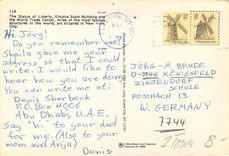 L28
The Statue of Liberty, Empire State Building and
the World Trade Center, three of the most famous
structures in the world, are situated in New York
City.
Hi Jörg!
Do you remember me?
Sheila gave me your
address so that I could
write. I would like to
hear how you are doing.
You can write me at
Denis Sharbeck
Abu Dhabi, U.A.E.
Say "hi" to your dad
for me. (Also to your
mom and Anja)
Denis
JÖRG-M. BRUDE
KÖNIGSFELD
ZINZENDORF
SCHULE
POSTFACH 13
W. GERMANY
7744
8